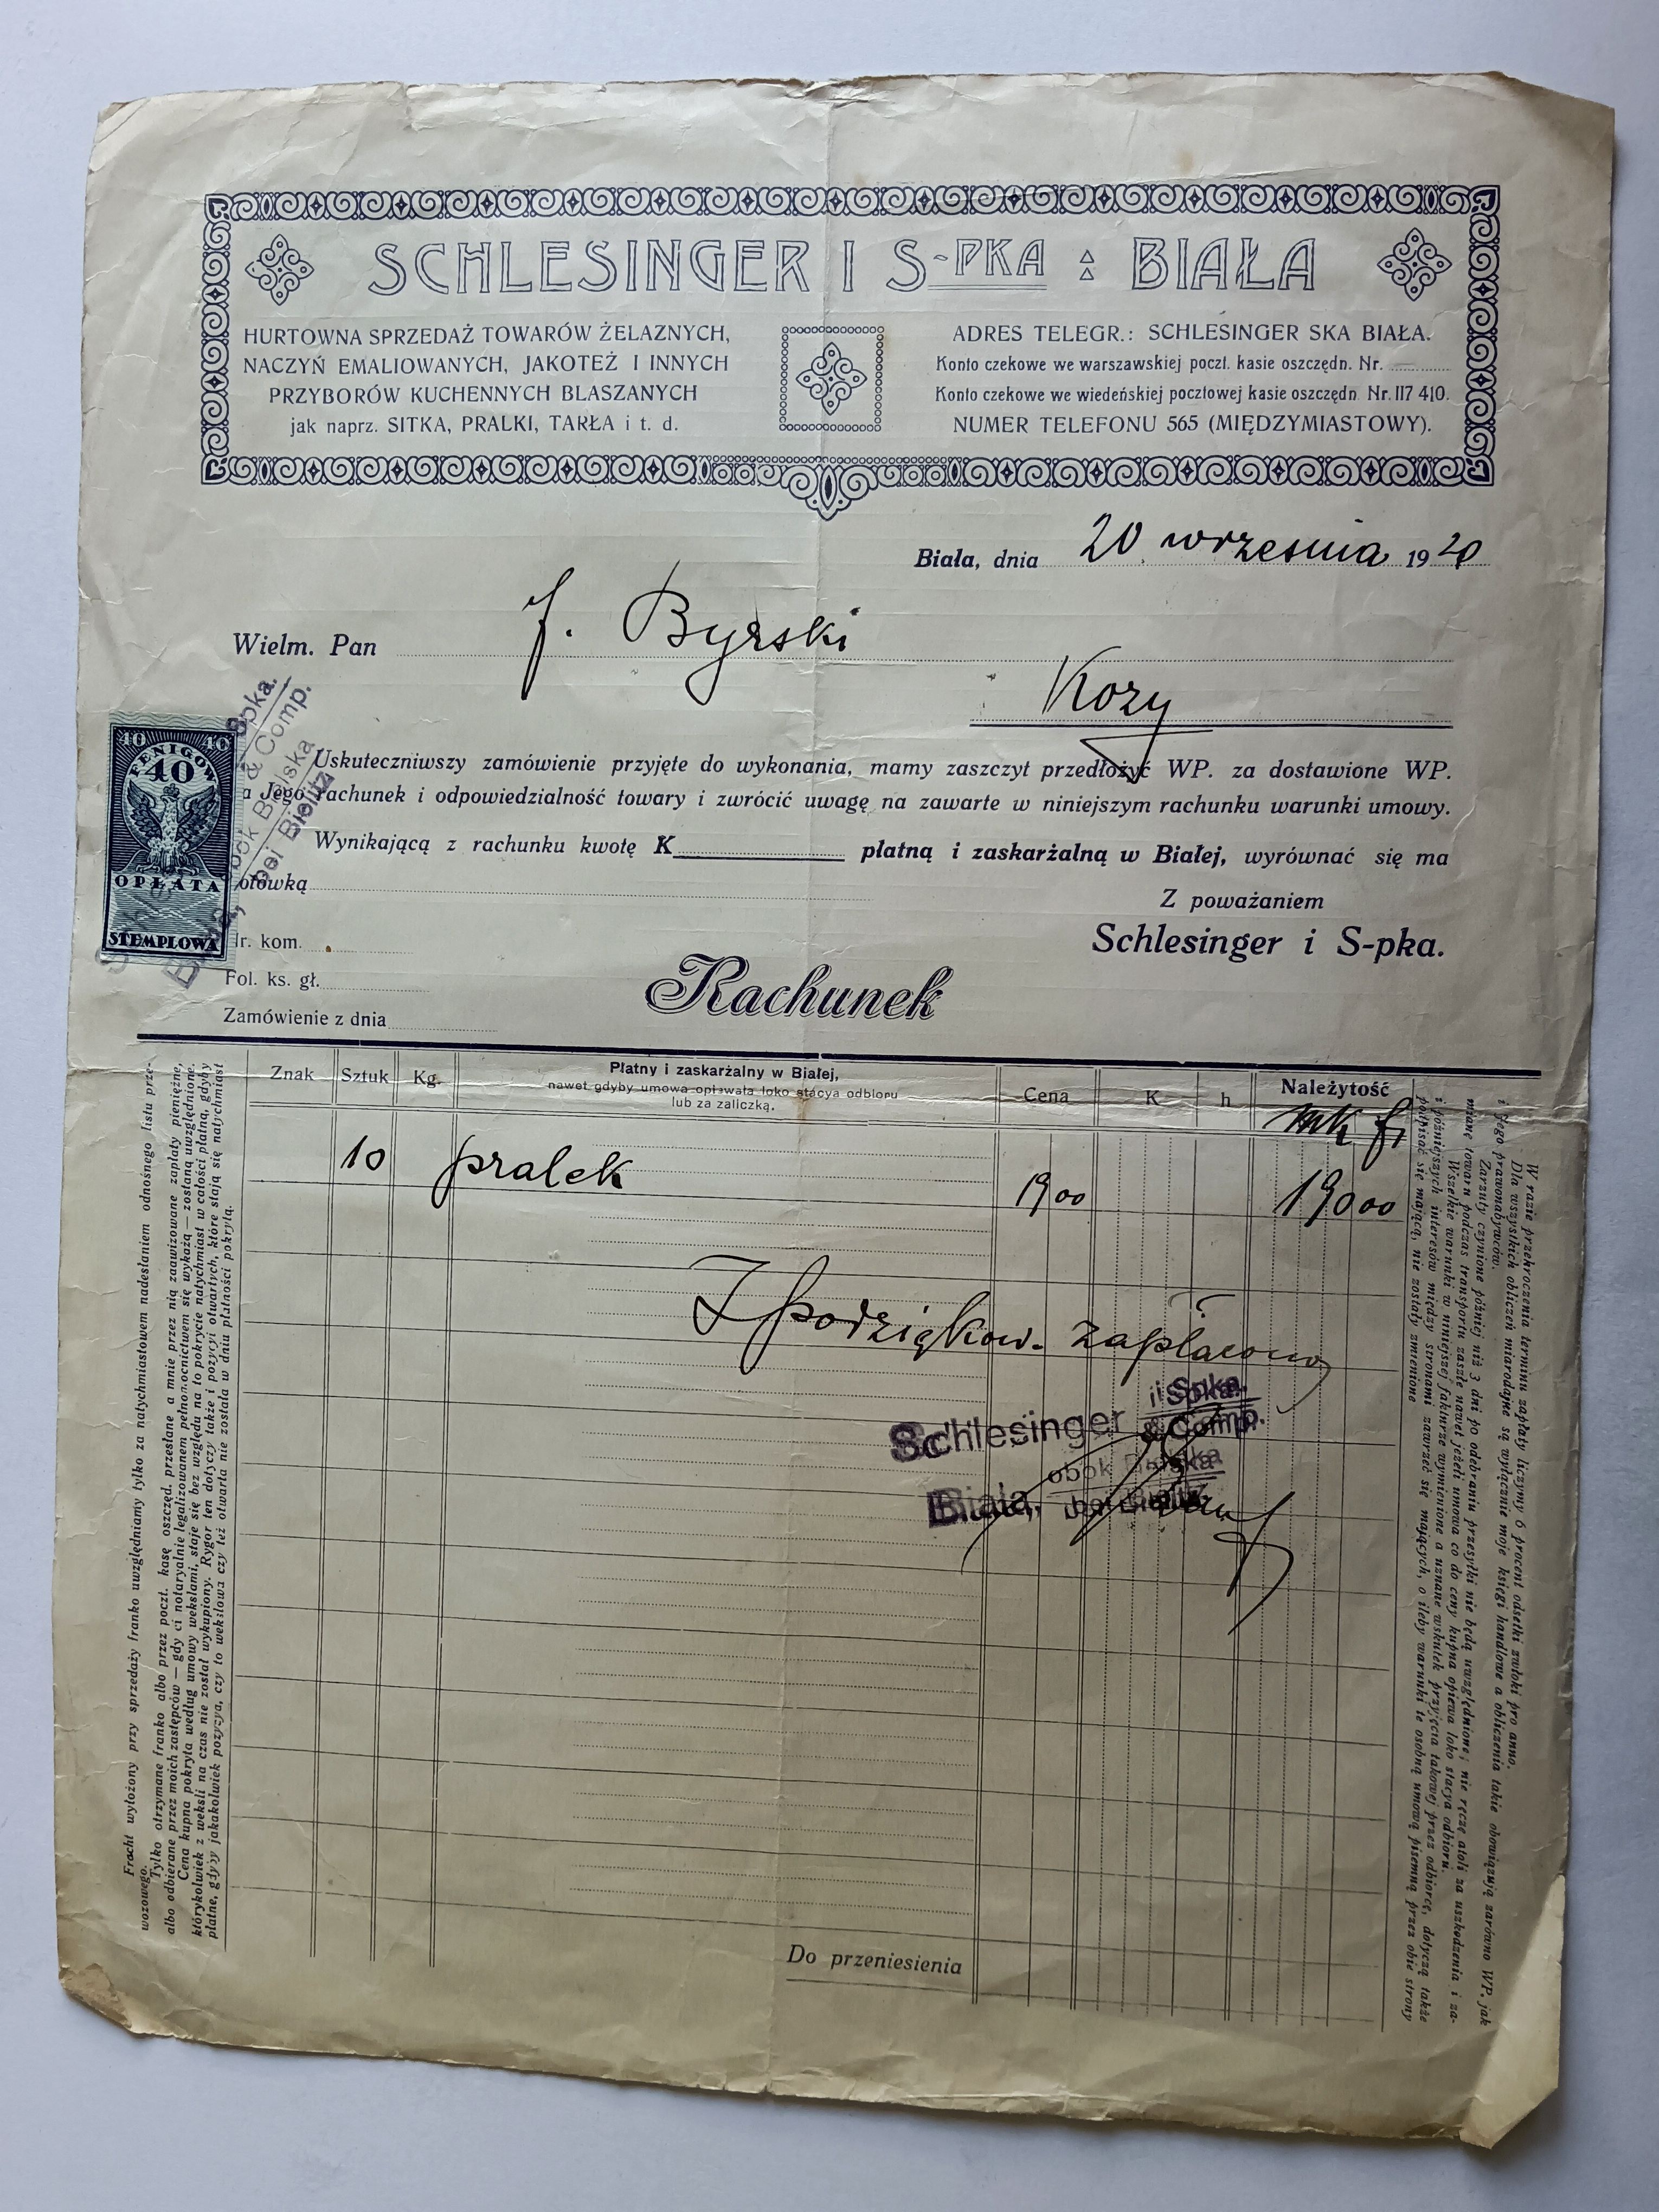 SCHLESINGER I S-PKA : BIAŁA
HURTOWNA SPRZEDAŻ TOWARÓW ŻELAZNYCH,
NACZYŃ EMALIOWANYCH, JAKOTEŻ I INNYCH
PRZYBORÓW KUCHENNYCH BLASZANYCH
jak naprz. SITKA, PRALKI, TARŁA i t. d.
ADRES TELEGR.: SCHLESINGER SKA BIAŁA.
Konto czekowe we warszawskiej poczt. kasie oszczędn. Nr.
Konto czekowe we wiedeńskiej pocztowej kasie oszczędn. Nr. 117 410.
NUMER TELEFONU 565 (MIĘDZYMIASTOWY).
Biała, dnia 20 września 1920
Wielm. Pan J. Byrski
Kozy
40 40
FENIGÓW
40
OPŁATA
STEMPLOWA
Spka.
& Comp.
obok Bielska
bei Bielitz
Uskuteczniwszy zamówienie przyjęte do wykonania, mamy zaszczyt przedłożyć WP. za dostawione WP.
a Jego rachunek i odpowiedzialność towary i zwrócić uwagę na zawarte w niniejszym rachunku warunki umowy.
Wynikającą z rachunku kwotę K platną i zaskarżalną w Białej, wyrównać się ma
otówką
Z poważaniem
Schlesinger i S-pka.
Nr. kom.
Fol. ks. gł.
Zamówienie z dnia
Rachunek
Znak Sztuk Kg. Płatny i zaskarżalny w Białej, Cena K h Należytość
nawet gdyby umowa opiewała loko stacya odbioru
lub za zaliczką.
mk f
10 pralek 1900 19000
Z podziękow. zapłacono
Schlesinger i Spka.
& Comp.
obok Bielska
Biała, bei Bielitz
Do przeniesienia
Fracht wyłożony przy sprzedaży franko uwzględniamy tylko za natychmiastowem nadesłaniem odnośnego listu prze-
wozowego.
Tylko otrzymane franko albo przez poczt. kasę oszczęd. przesłane a mnie przez nią zaawizowane zapłaty pieniężne,
albo odbierane przez moich zastępców — gdy ci notaryalnie legalizowanem pełnomocnictwem się wykażą — zostaną uwzględnione.
Cena kupna pokryta według umowy wekslami, staje się bez względu na to pokrycie natychmiast w całości płatną, gdyby
którykolwiek z weksli na czas nie został wykupiony. Rygor ten dotyczy także i pozycyi otwartych, które stają się natychmiast
płatne, gdyby jakakolwiek pozycya, czy to wekslowa czy też otwarta nie została w dniu płatności pokrytą.
W razie przekroczenia terminu zapłaty liczymy 6 procent odsetki zwłoki pro anno.
Dla wszystkich obliczeń miarodajne są wyłącznie moje księgi handlowe a obliczenia takie obowiązują zarówno WP. jak
i jego prawonabywców.
Zarzuty czynione później niż 3 dni po odebraniu przesyłki nie będą uwzględnione; nie ręczę atoli za uszkodzenia i za-
mianę towaru podczas transportu zaszłe nawet jeżeli umowa co do ceny kupna opiewa loko stacya odbioru.
Wszelkie warunki w niniejszej fakturze wymienione a uznane wskutek przyjęcia takowej przez odbiorcę, dotyczą także
i późniejszych interesów między stronami zawrzeć się mających, o ileby warunki te osobną umową pisemną przez obie strony
podpisać się mającą, nie zostały zmienione